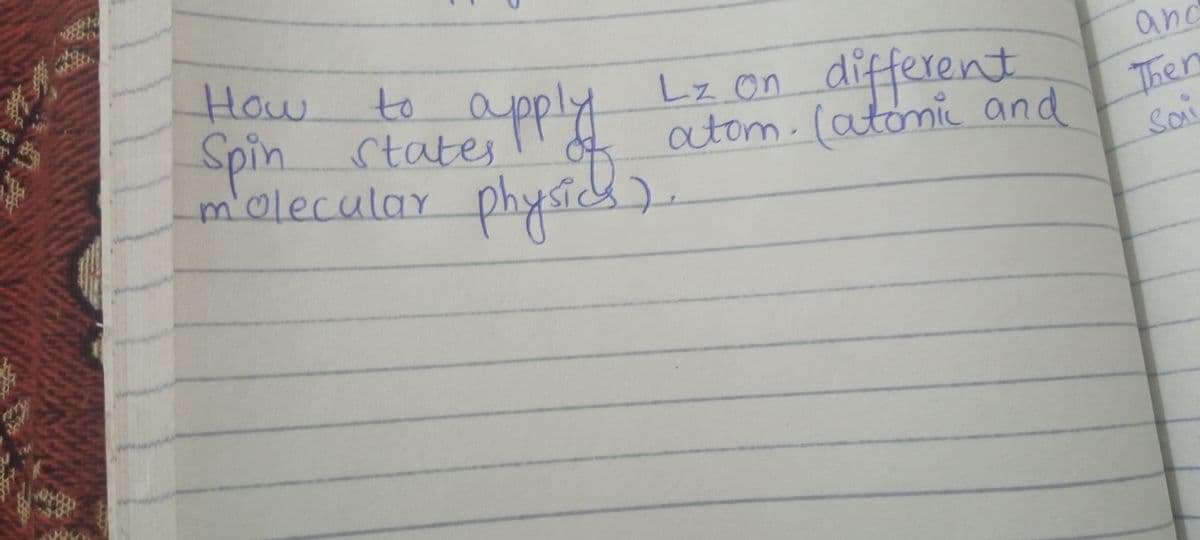 How to apply Lz on different
Spin states of atom. (atomic and
molecular physics).
and
Then